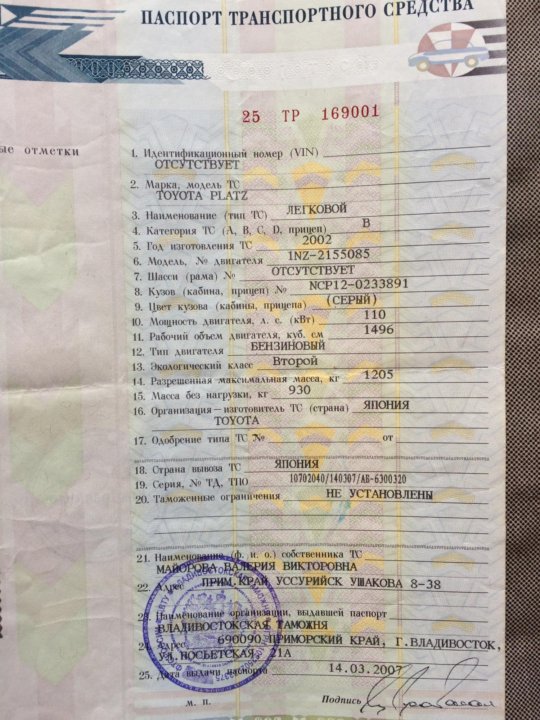 ПАСПОРТ ТРАНСПОРТНОГО СРЕДСТВА
25 ТР 169001
ые отметки
1. Идентификационный номер (VIN)
ОТСУТСТВУЕТ
2. Марка, модель ТС
TOYOTA PLATZ
3. Наименование (тип ТС) ЛЕГКОВОЙ
4. Категория ТС (A, B, C, D, прицеп) B
5. Год изготовления ТС 2002
6. Модель, № двигателя 1NZ-2155085
7. Шасси (рама) № ОТСУТСТВУЕТ
8. Кузов (кабина, прицеп) № NCP12-0233891
9. Цвет кузова (кабины, прицепа) (СЕРЫЙ)
10. Мощность двигателя, л. с. (кВт) 110
11. Рабочий объем двигателя, куб. см 1496
12. Тип двигателя БЕНЗИНОВЫЙ
13. Экологический класс Второй
14. Разрешенная максимальная масса, кг 1205
15. Масса без нагрузки, кг 930
16. Организация–изготовитель ТС (страна) ЯПОНИЯ
TOYOTA
17. Одобрение типа ТС № от
18. Страна вывоза ТС ЯПОНИЯ
19. Серия, № ТД, ТПО 10702040/140307/АВ-6300320
20. Таможенные ограничения НЕ УСТАНОВЛЕНЫ
21. Наименование (ф. и. о.) собственника ТС
МАЙОРОВА ВАЛЕРИЯ ВИКТОРОВНА
22. Адрес ПРИМ.КРАЙ УССУРИЙСК УШАКОВА 8-38
23. Наименование организации, выдавшей паспорт
ВЛАДИВОСТОКСКАЯ ТАМОЖНЯ
24. Адрес 690090 ПРИМОРСКИЙ КРАЙ, Г.ВЛАДИВОСТОК,
УЛ.ПОСЬЕТСКАЯ 21А
25. Дата выдачи паспорта 14.03.2007
М. П. Подпись